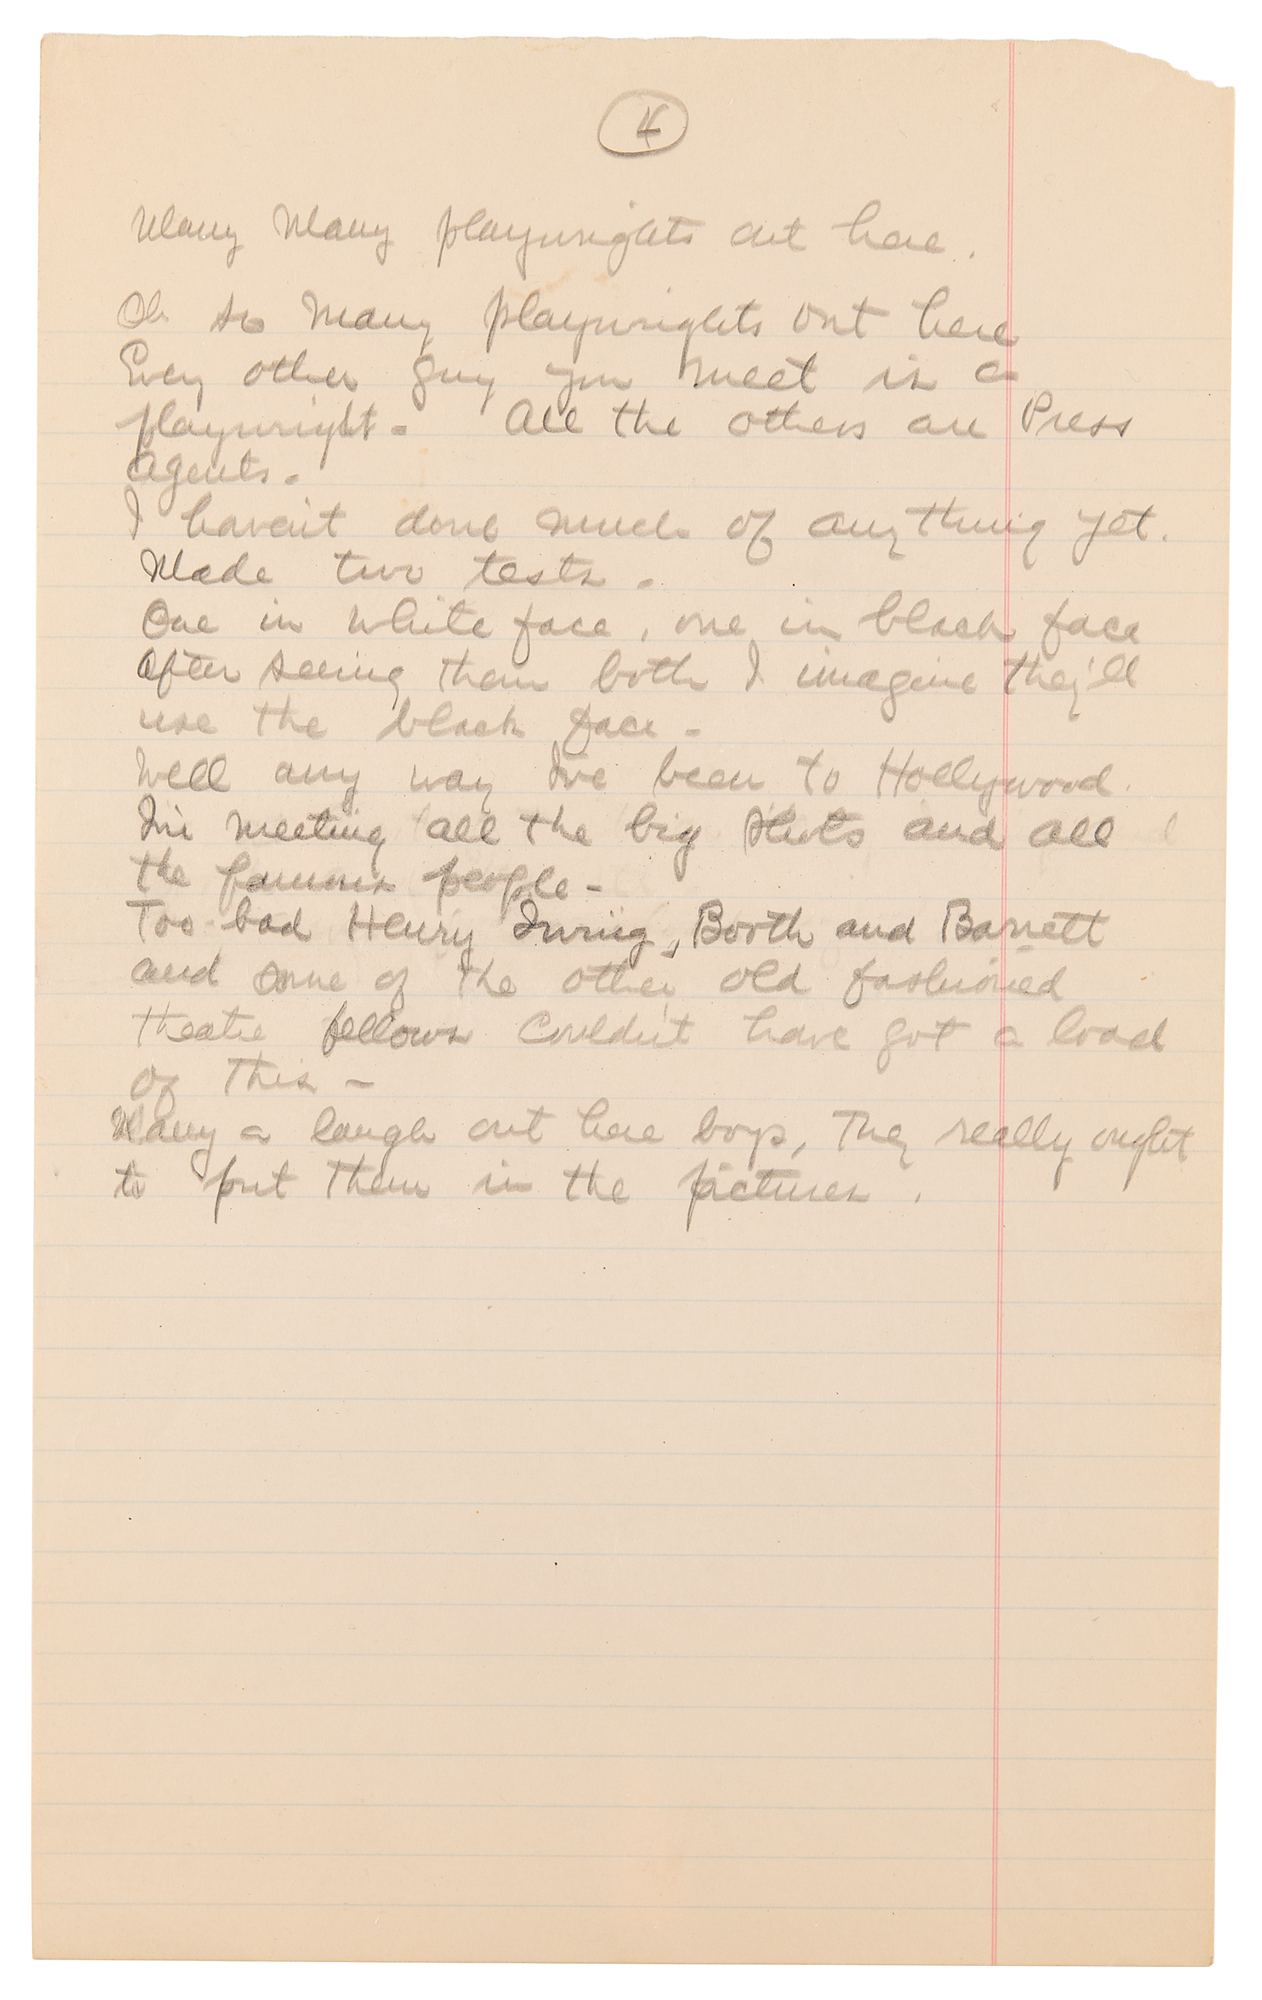 4
Many Many playwrights out here.
Oh so many playwrights out here
Every other guy you meet is a
playwright - All the others are Press
agents -
I haven't done much of anything yet.
Made two tests -
One in white face, one in black face
After seeing them both I imagine they'll
use the black face -
Well any way I've been to Hollywood.
I'm meeting all the big shots and all
the famous people -
Too bad Henry Irving, Booth and Barrett
and some of the other old fashioned
theatre fellows couldn't have got a load
of this -
Many a laugh out here boys, They really ought
to put them in the pictures.